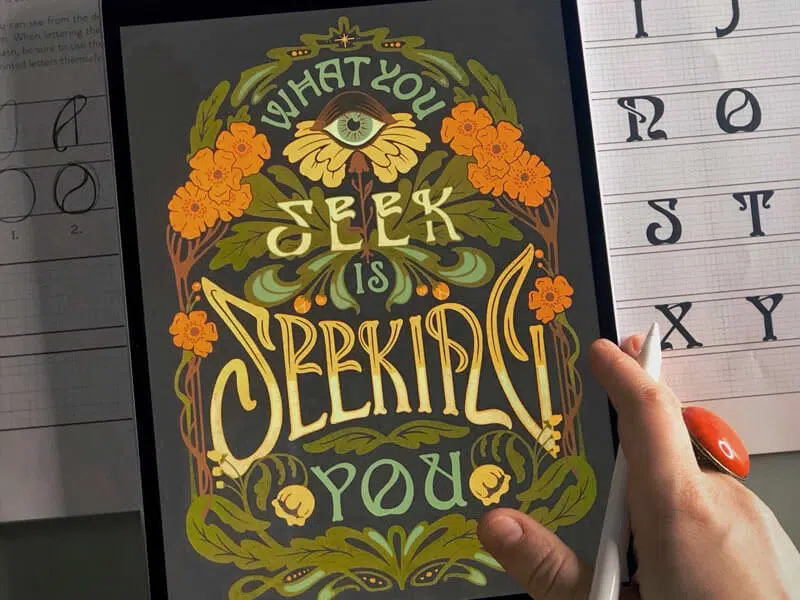 u can see from the d
. When lettering the
ash, be sure to use the
rinted letters themselve
1. 2.
WHAT YOU
SEEK
IS
SEEKING
YOU
I J
N O
S T
X Y